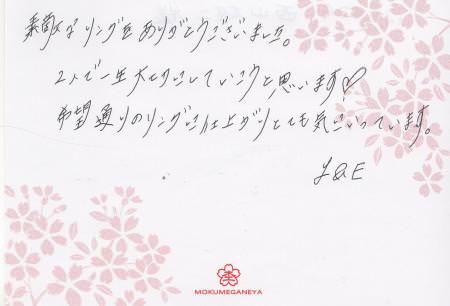 素敵なリングをありがとうございました。
2人で一生大切にしていこうと思います♡
希望通りのリングに仕上がりとても気にいっています。
Y&E
MOKUMEGANEYA